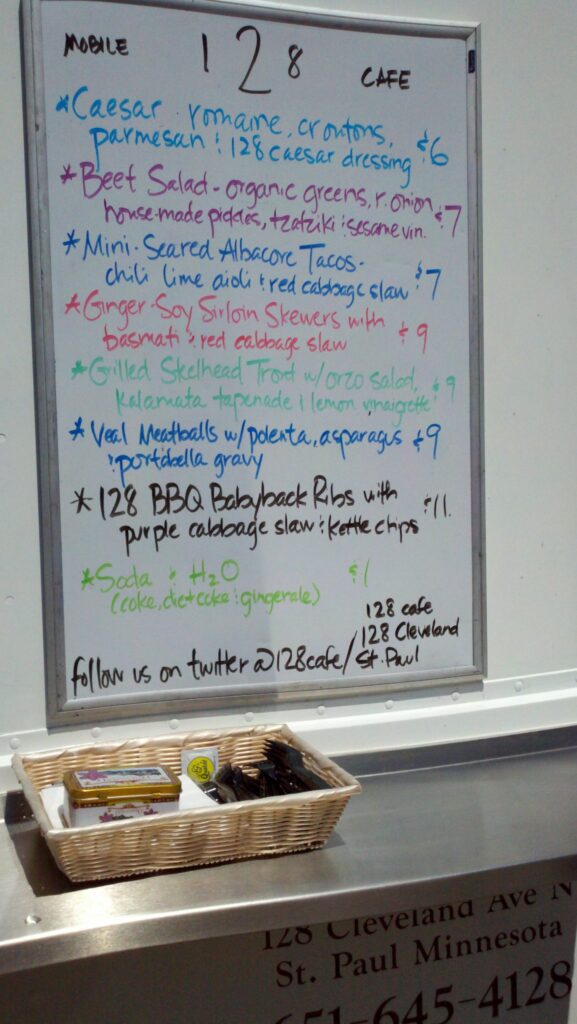 MOBILE 128 CAFE
*Caesar. romaine, croutons,
parmesan & 128 caesar dressing $6
*Beet Salad - organic greens, r. onion,
house-made pickles, tzatziki & sesame vin. $7
*Mini-Seared Albacore Tacos-
chili lime aioli & red cabbage slaw $7
*Ginger-Soy Sirloin Skewers with
basmati & red cabbage slaw $9
*Grilled Steelhead Trout w/orzo salad,
kalamata tapenade & lemon vinaigrette $9
*Veal Meatballs w/polenta, asparagus
& portabella gravy $9
*128 BBQ Babyback Ribs with
purple cabbage slaw & kettle chips $11.
*Soda & H2O $1
(coke, diet coke & gingerale)
128 cafe
128 Cleveland
St. Paul
follow us on twitter @128cafe/
128 Cleveland Ave N
St. Paul Minnesota
651-645-4128